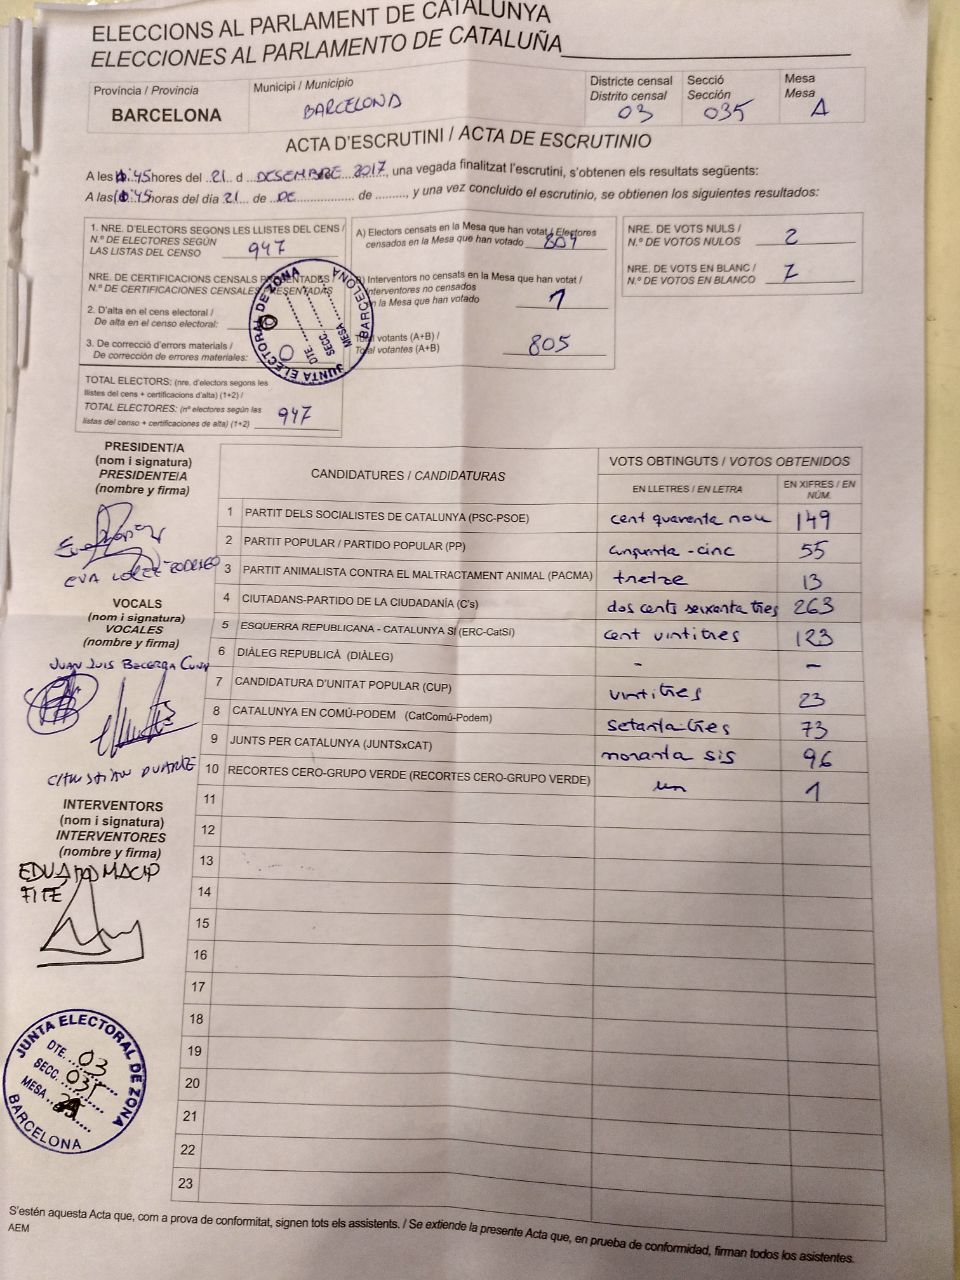 ELECCIONS AL PARLAMENT DE CATALUNYA
ELECCIONES AL PARLAMENTO DE CATALUÑA
Província / Provincia
BARCELONA
Municipi / Municipio
BARCELONA
Districte censal
Distrito censal
03
Secció
Sección
035
Mesa
Mesa
A
ACTA D'ESCRUTINI / ACTA DE ESCRUTINIO
A les 10:45 hores del 21 d DESEMBRE 2017, una vegada finalitzat l'escrutini, s'obtenen els resultats següents:
A las 10:45 horas del día 21 de DE de ........., y una vez concluido el escrutinio, se obtienen los siguientes resultados:
1. NRE. D'ELECTORS SEGONS LES LLISTES DEL CENS /
N.º DE ELECTORES SEGÚN
LAS LISTAS DEL CENSO
947
NRE. DE CERTIFICACIONS CENSALS PRESENTADES /
N.º DE CERTIFICACIONES CENSALES PRESENTADAS
2. D'alta en el cens electoral /
De alta en el censo electoral:
0
3. De correcció d'errors materials /
De corrección de errores materiales:
0
TOTAL ELECTORS: (nre. d'electors segons les
llistes del cens + certificacions d'alta) (1+2) /
TOTAL ELECTORES: (nº electores según las
listas del censo + certificaciones de alta) (1+2)
947
A) Electors censats en la Mesa que han votat / Electores
censados en la Mesa que han votado
804
B) Interventors no censats en la Mesa que han votat /
Interventores no censados
en la Mesa que han votado
1
Total votants (A+B) /
Total votantes (A+B)
805
NRE. DE VOTS NULS /
N.º DE VOTOS NULOS
2
NRE. DE VOTS EN BLANC /
N.º DE VOTOS EN BLANCO
7
JUNTA ELECTORAL DE ZONA
BARCELONA
DTE.
SECC.
MESA
PRESIDENT/A
(nom i signatura)
PRESIDENTE/A
(nombre y firma)
EVA LOPEZ RODRIGO
VOCALS
(nom i signatura)
VOCALES
(nombre y firma)
JUAN LUIS BECERRA
CHRISTIAN DUARTE
INTERVENTORS
(nom i signatura)
INTERVENTORES
(nombre y firma)
EDUARDO MACIP
FITE
JUNTA ELECTORAL DE ZONA
DTE. 03
SECC. 035
MESA A
BARCELONA
CANDIDATURES / CANDIDATURAS
VOTS OBTINGUTS / VOTOS OBTENIDOS
EN LLETRES / EN LETRA
EN XIFRES / EN NÚM.
1 PARTIT DELS SOCIALISTES DE CATALUNYA (PSC-PSOE) cent quaranta nou 149
2 PARTIT POPULAR / PARTIDO POPULAR (PP) cinquanta-cinc 55
3 PARTIT ANIMALISTA CONTRA EL MALTRACTAMENT ANIMAL (PACMA) tretze 13
4 CIUTADANS-PARTIDO DE LA CIUDADANÍA (C's) dos cents seixanta tres 263
5 ESQUERRA REPUBLICANA - CATALUNYA SÍ (ERC-CatSí) cent vintitres 123
6 DIÀLEG REPUBLICÀ (DIÀLEG) - -
7 CANDIDATURA D'UNITAT POPULAR (CUP) vintitres 23
8 CATALUNYA EN COMÚ-PODEM (CatComú-Podem) setanta-tres 73
9 JUNTS PER CATALUNYA (JUNTSxCAT) noranta sis 96
10 RECORTES CERO-GRUPO VERDE (RECORTES CERO-GRUPO VERDE) un 1
11
12
13
14
15
16
17
18
19
20
21
22
23
S'estén aquesta Acta que, com a prova de conformitat, signen tots els assistents. / Se extiende la presente Acta que, en prueba de conformidad, firman todos los asistentes.
AEM